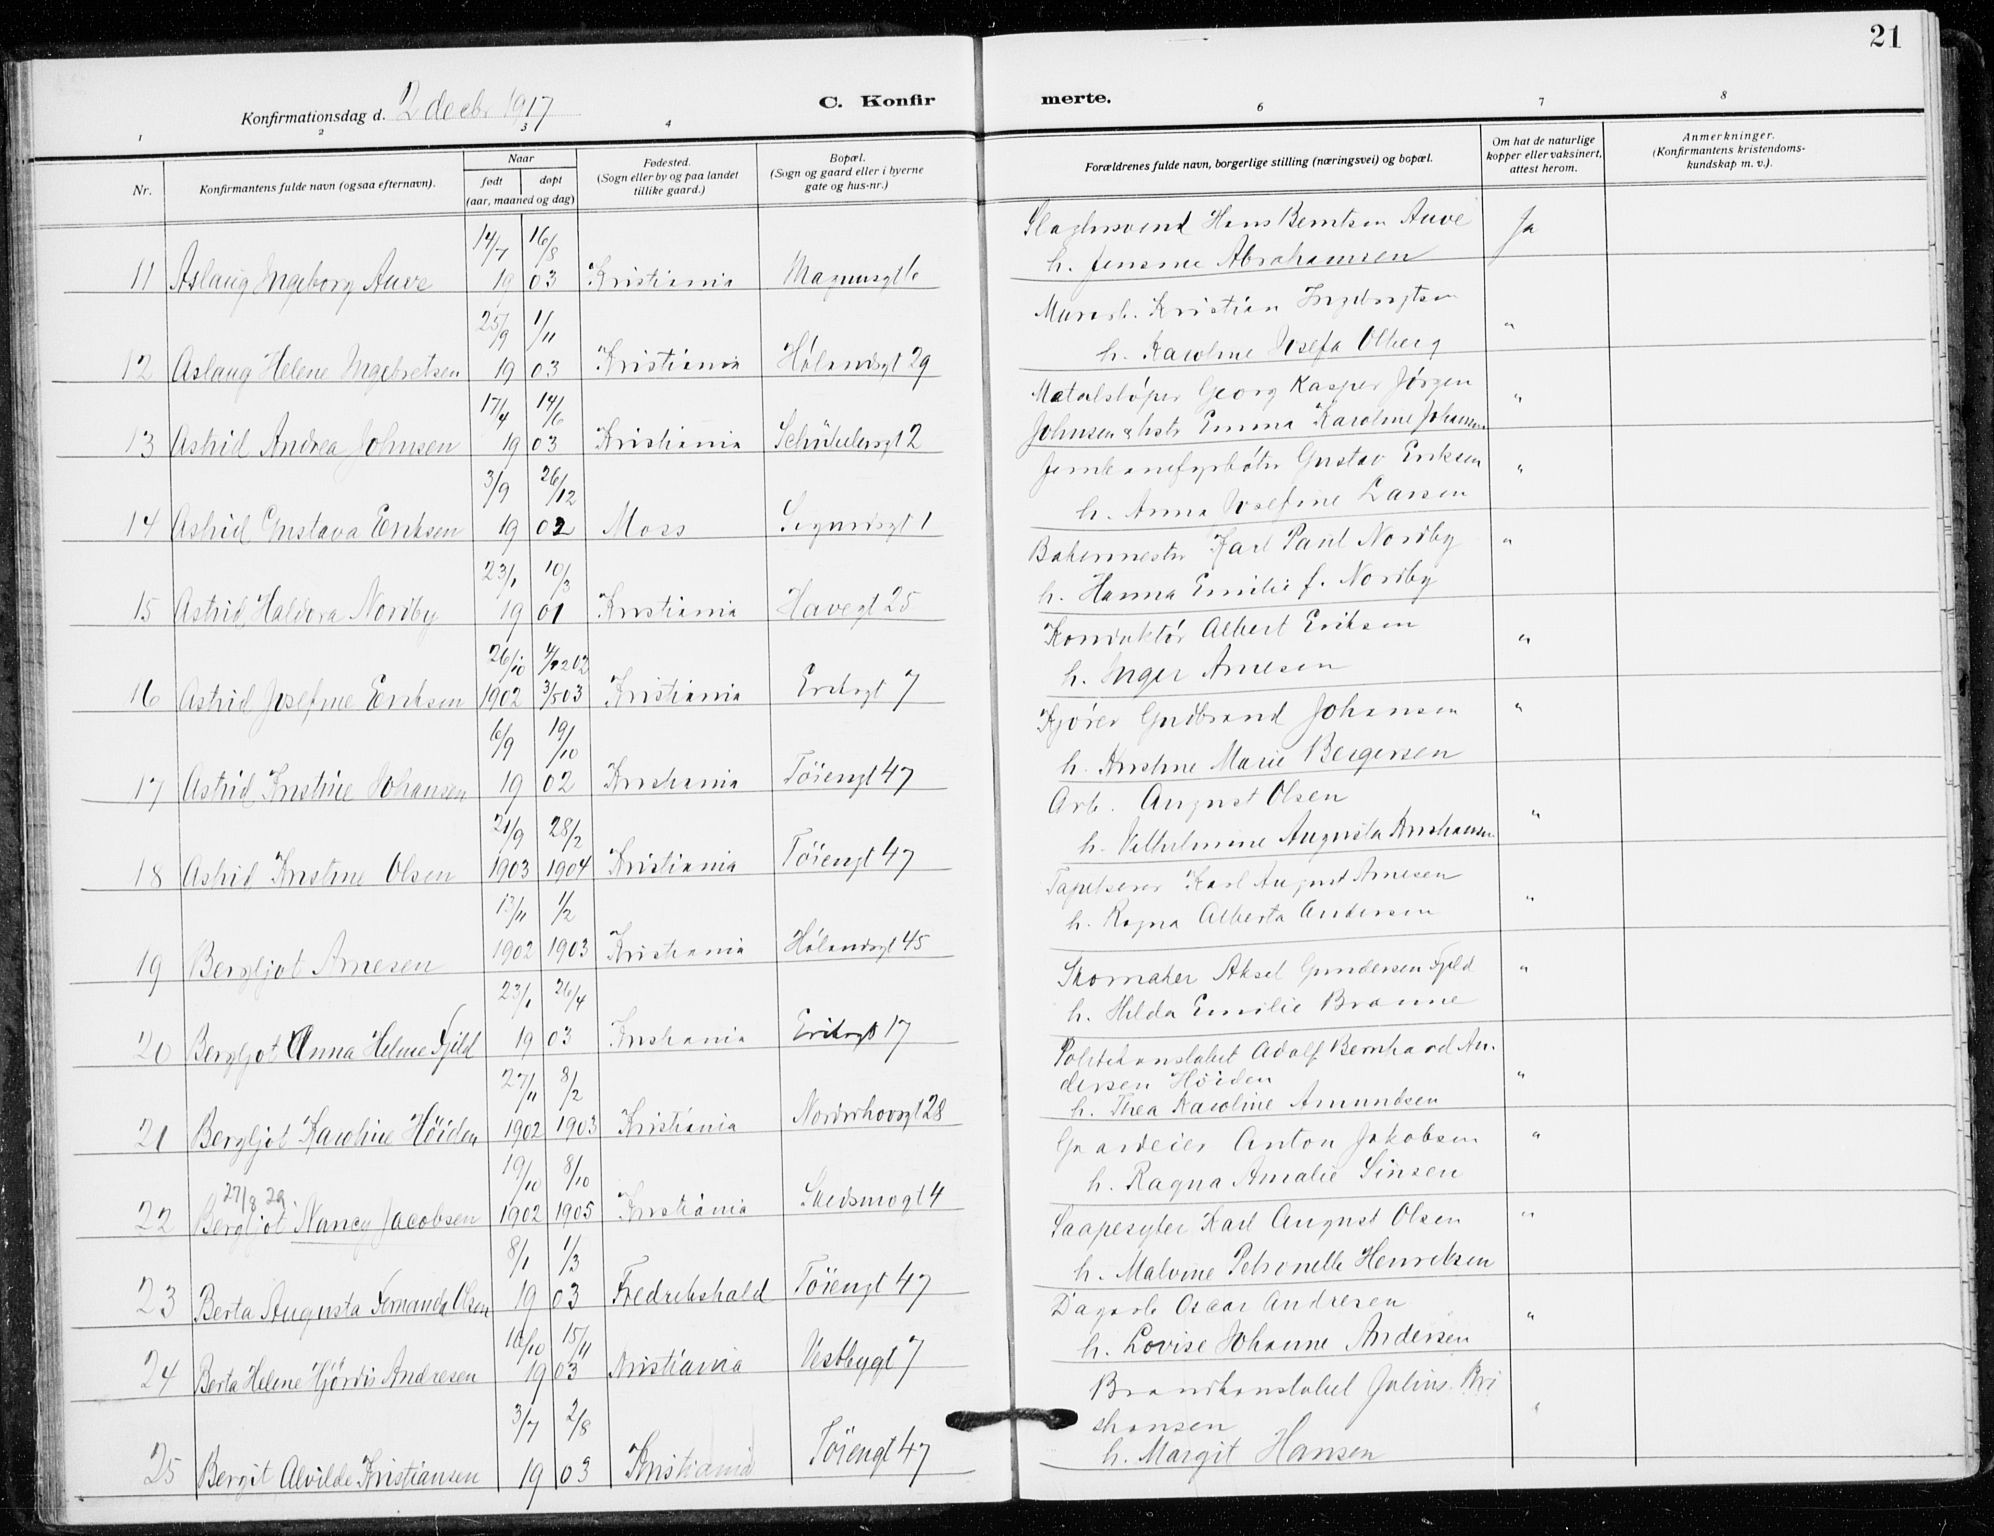 21
Konfirmationsdag d. 2 decbr 1917
C. Konfirmerte.
1 2 3 4 6 7 8
Nr.
Konfirmantens fulde navn (ogsaa efternavn).
Naar
født døpt
(aar, maaned og dag)
Fødested.
(Sogn eller by og paa landet
tillike gaard.)
Bopæl.
(Sogn og gaard eller i byerne
gate og hus-nr.)
Forældrenes fulde navn, borgerlige stilling (næringsvei) og bopæl.
Om hat de naturlige
kopper eller vaksinert,
attest herom.
Anmerkninger.
(Konfirmantens kristendoms-
kundskap m. v.).
14/7 16/8 Hans Berntsen Auve Ja
11 Aslaug Ingeborg Auve 19 03 Kristiania Magnusgt 6 h. Abrahamsen
25/9 1/11 Kristian Ingebrigtsen "
12 Aslaug Helene Ingebretsen 19 03 Kristiania Hølandsgt 29 h. Karoline Josefa Olberg
17/4 14/6 Metalstøper Georg Kasper Jørgen "
13 Astrid Andrea Johnsen 19 03 Kristiania Schübelersgt 2 Johnsen & hstr Emma Karoline Johansen
3/9 26/12 Jernbanefyrbøter Gustav Eriksen "
14 Astrid Gustava Eriksen 19 02 Moss Sigurdsgt 1 h. Anna Josefine Larsen
23/1 10/3 Bakermester Karl Paul Nordby "
15 Astrid Haldora Nordby 19 01 Kristiania Havegt 25 h. Hanna Emilie f. Nordby
26/10 Konduktør Albert Eriksen "
16 Astrid Josefine Eriksen 1902 3/5 03 Kristiania Eriksgt 7 h. Inger Arnesen
6/9 19/10 Kjører Gudbrand Johansen "
17 Astrid Kristine Johansen 19 02 Kristiania Tøiengt 47 h. Kristine Marie Bergersen
21/9 28/2 Arb. August Olsen "
18 Astrid Kristine Olsen 1903 1904 Kristiania Tøiengt 47 h. Vilhelmine Augusta Kristiansen
13/11 1/2 Tapetserer Karl August Arnesen "
19 Bergljot Arnesen 1902 1903 Kristiania Hølandsgt 45 h. Ragna Alberta Andersen
23/1 26/4 Skomaker Aksel Gundersen Fjeld "
20 Bergljot Anna Helene Fjeld 19 03 Kristiania Eriksgt 17 h. Hilda Emilie
27/11 8/2 Politikonstabel Adolf Bernhard An-
dersen Høiden "
21 Bergljot Karoline Høiden 1902 1903 Kristiania Norderhovsgt 28 h. Thea Karoline Amundsen
19/10 8/10 Gaardeier Anton Jakobsen "
27/8 29
22 Bergljot Nancy Jacobsen 1902 1905 Kristiania Skedsmogt 4 h. Ragna Amalie Sinsen
8/1 1/3 Saapesyder Karl August Olsen "
23 Berta Augusta Fernanda Olsen 19 03 Fredrikshald Tøiengt 47 h. Malvine Petronelle Henriksen
10/10 15/11 Dagarb Oscar Andresen "
24 Berta Helene Hjördis Andresen 19 03 Kristiania Vestbygt 7 h. Lovise Johanne Andersen
3/7 2/8 Brandkonstabel Julius Kri
stiansen "
25 Bergit Alvilde Kristiansen 19 03 Kristiania Tøiengt 47 h. Margit Hansen